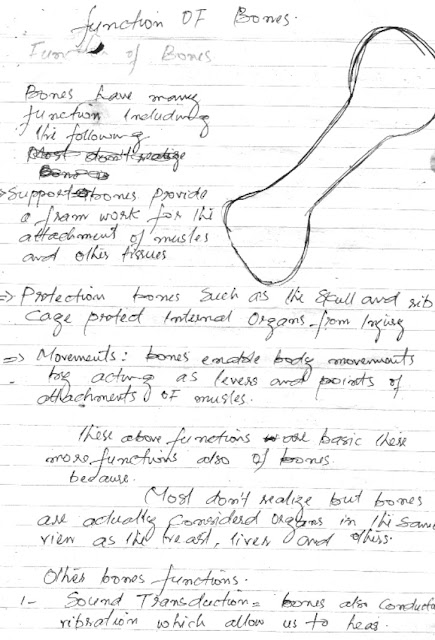 function OF Bones.
Function of Bones
Bones have many
function Including
the following
Most don't realize
Bones
=> Support bones provide
a fram work for the
attachment of musles
and other tissues
=> Protection bones Such as the Skull and rib
Cage protect Internal Organs from Injury
=> Movements: bones enable body movements
by acting as levers and points of
attachments OF musles.
these above functions are basic these
more functions also of bones
because.
(Most don't realize but bones
are actually Considerd organs in the same
view as the heart, liver and others.
Other bones functions.
1- Sound Transduction = bones also Conducta
vibration which allow us to hear.